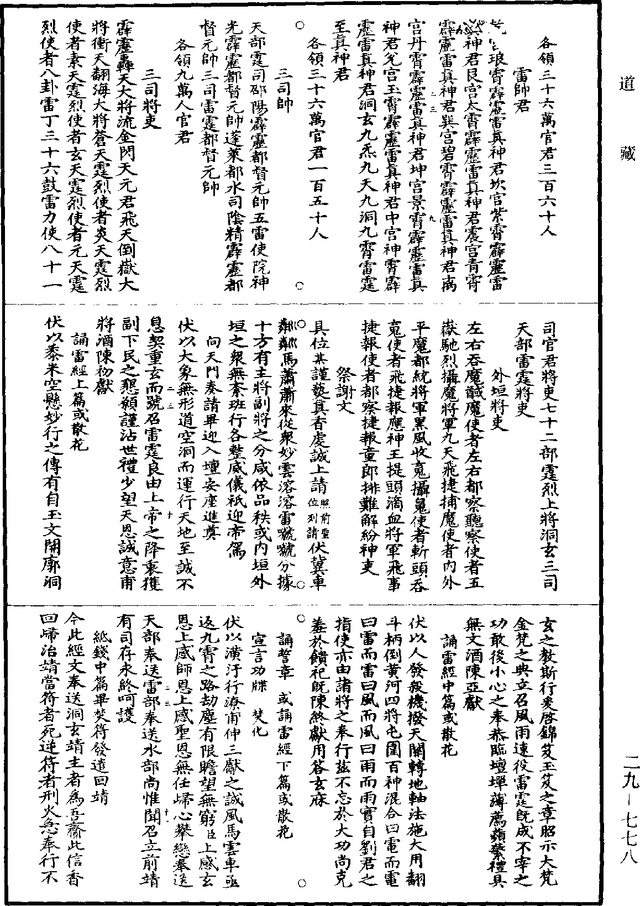 道藏
各領三十六萬官君三百六十人
雷帥君
琅霄霹靂雷真神君坎宮紫霄霹靂雷
真神君艮宮太霄霹靂雷真神君震宮青霄
霹靂雷真神君巽宮碧霄霹靂雷真神君离
宮丹霄霹靂雷真神君坤宮景霄霹靂雷真
神君兌宮玉霄霹靂雷真神君中宮神霄霹
靂雷真神君洞玄九炁九天九洞九霄雷霆
至真神君
各領三十六萬官君一百五十人
三司帥
天部霆司部陽霹靂都督元帥五雷使院神
光霹靂都督元帥蓬萊都水司陰精霹靂都
督元帥三司雷霆都督元帥
各領九萬人官君
三司將吏
霹靂轟天大將流金閃天元君飛天倒嶽大
將衝天翻海大將蒼天霆烈使者炎天霆烈
使者素天霆烈使者玄天霆烈使者元天霆
烈使者八卦雷丁三十六鼓雷力使八十一
司官君將吏七十二部霆烈上將洞玄三司
天部雷霆將吏
外垣將吏
左右吞魔馘魔使者左右都察聽察使者五
嶽馳烈攝魔將軍九天飛捷捕魔使者內外
平魔都統將軍黑風收寃攝䰟使者斬頭吞
寃使者飛捷報應神王提頭滴血將軍飛事
捷報使者都察捷報童郎排難解紛神吏
祭謝文
具位某謹爇真香虔誠上請照前聖位列請伏冀車
粼粼馬蕭蕭來從眾妙雲溶溶雷虩虩分據
十方有主將副將之分咸依品秩或內垣外
垣之眾無紊班行各整威儀祇迎帝馭
向天門奏請畢迎入壇安座進奠
伏以大象無形道空洞而運行天地至誠不
息契重玄而號召雷霆良由上帝之降衷獲
副下民之懇願謹沾世禮少望天恩誠意甫
將酒陳初獻
誦雷經上篇或散花
伏以黍米空懸妙行之傳有自玉文開廓洞
玄之教斯行爰啓錦笈玉笈之章昭示大梵
金梵之典立召風雨遠役雷霆既成不宰之
功敢後小心之奉恭臨壇墠薄薦蘋蘩禮具
無文酒陳亞獻
誦雷經中篇或散花
伏以人發殺機撥天關轉地軸法施大用翻
斗柄倒黃河四將屯圍百神混合曰電而電
曰雷而雷曰風而風曰雨而雨實自劉君之
指使亦由諸將之奉行茲不忘於大功尚克
羞於饋祀既陳終獻用答玄庥
誦誓章 或誦雷經下篇或散花
宣言功牒 焚化
伏以潢汙行潦甫伸三獻之誠風馬雲車亟
返九霄之路劫塵有限瞻望無窮臣上感玄
恩上感師恩上感聖恩無任歸心攀戀奉送
天部奉送雷部奉送水部尚惟聞召立前靖
有司存永終呵護
紙錢中篇畢焚符發遣回靖
今此經文奉送洞玄靖主者為吾齎此信香
回歸治靖當符者死逆符者刑火急奉行不
二九－七七八